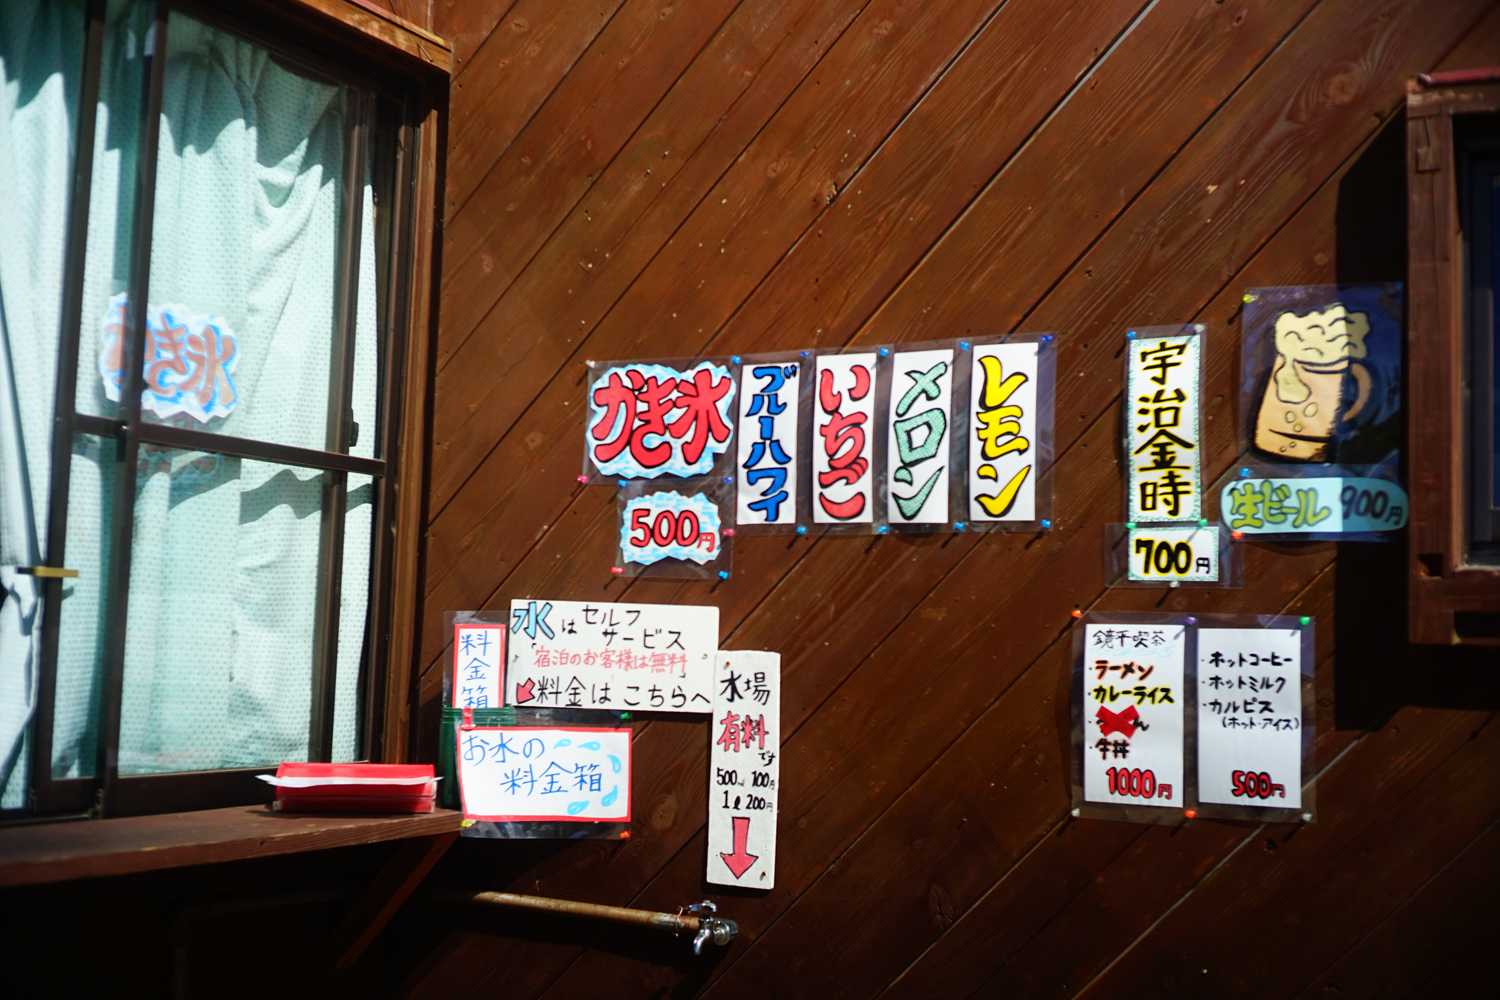 かき氷
かき氷
500円
ブルーハワイ
いちご
メロン
レモン
宇治金時
700円
生ビール 900円
料金箱
水はセルフ
サービス
宿泊のお客様は無料
料金はこちらへ
お水の
料金箱
水場
有料
です
500㎖ 100円
1ℓ 200円
鏡平喫茶
・ラーメン
・カレーライス
ん
・牛丼
1000円
・ホットコーヒー
・ホットミルク
・カルピス
(ホット・アイス)
500円